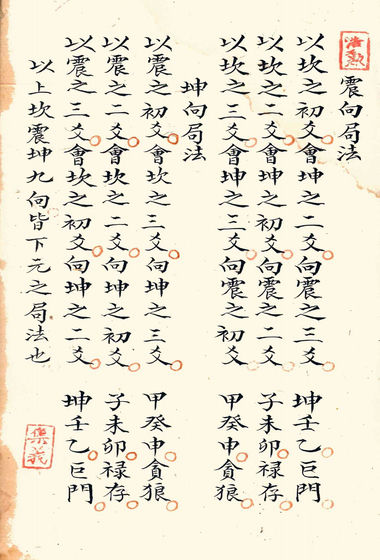 震向局法
以坎之初爻會坤之二爻向震之三爻 坤壬乙巨門
以坎之二爻會坤之初爻向震之二爻 子未卯禄存
以坎之三爻會坤之三爻向震之初爻 甲癸申貪狼
坤向局法
以震之初爻會坎之三爻向坤之三爻 甲癸申貪狼
以震之二爻會坎之二爻向坤之初爻 子未卯禄存
以震之三爻會坎之初爻向坤之二爻 坤壬乙巨門
以上坎震坤九向皆下元之局法也
集義